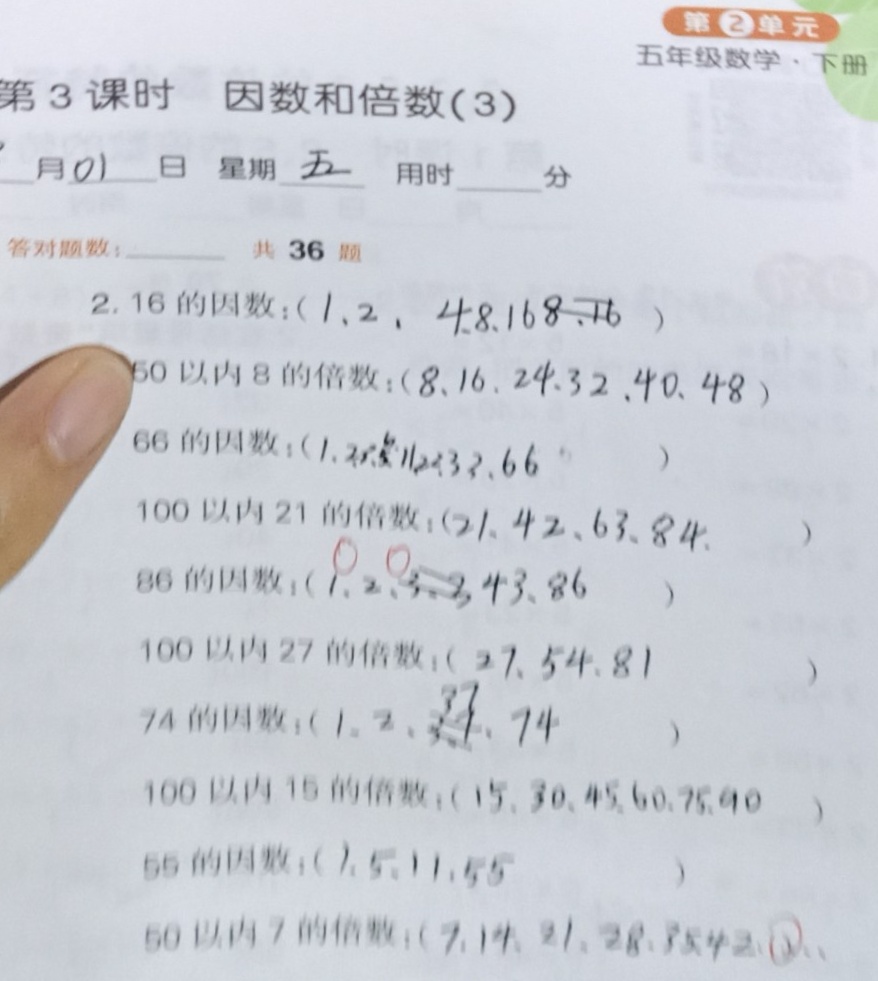 第2单元
五年级数学·下册
第3课时 因数和倍数(3)
月01日 星期五 用时____分
答对题数:____ 共36题
2. 16的因数:(1、2、4.8.16)
50以内8的倍数:(8、16.24.32、40、48)
66的因数:(1. 33、66)
100以内21的倍数:(21、42、63、84.)
86的因数:(1、2、43、86)
100以内27的倍数:(27、54、81)
74的因数:(1、2、37、74)
100以内15的倍数:(15、30、45、60、75、90)
55的因数:(1、5、11、55)
50以内7的倍数:(7、14、21、28、35、42、